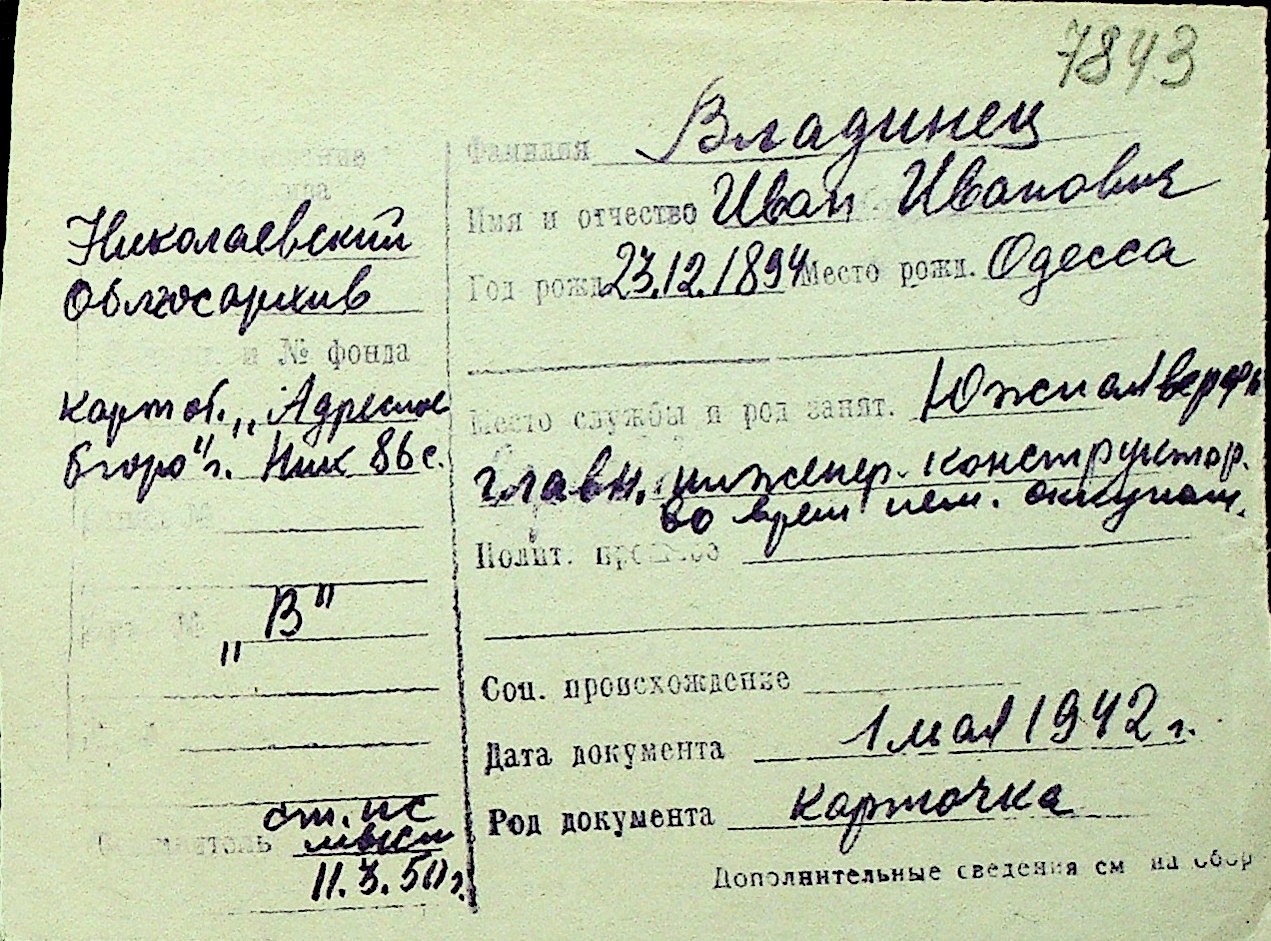 7843
Николаевский
Облгосархив
и № фонда
картот. „Адресное
бюро" г. Ник 86 с.
„В"
11.3.50 г.
Фамилия Владинец
Имя и отчество Иван Иванович
Год рожд. 23.12.1894 Место рожд. Одесса
Место службы и род занят. Южная верфь
главн. инженер. конструктор.
во врем нем. оккупац.
Полит. прошлое
Соц. происхождение
Дата документа 1 мая 1942 г.
Род документа карточка
Дополнительные сведения см на обор